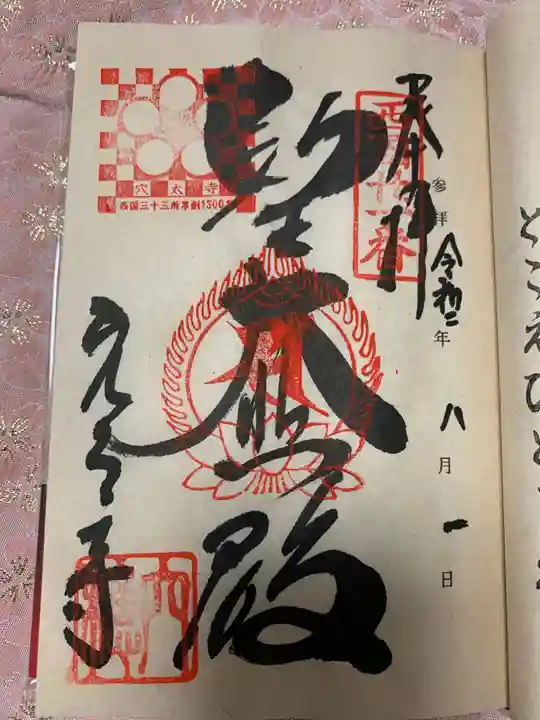 奉拝
西国廿一番
参拝 令和二年 八月 一日
聖大悲殿
穴太寺
西国三十三所草創1300年
穴太寺
とこえひと